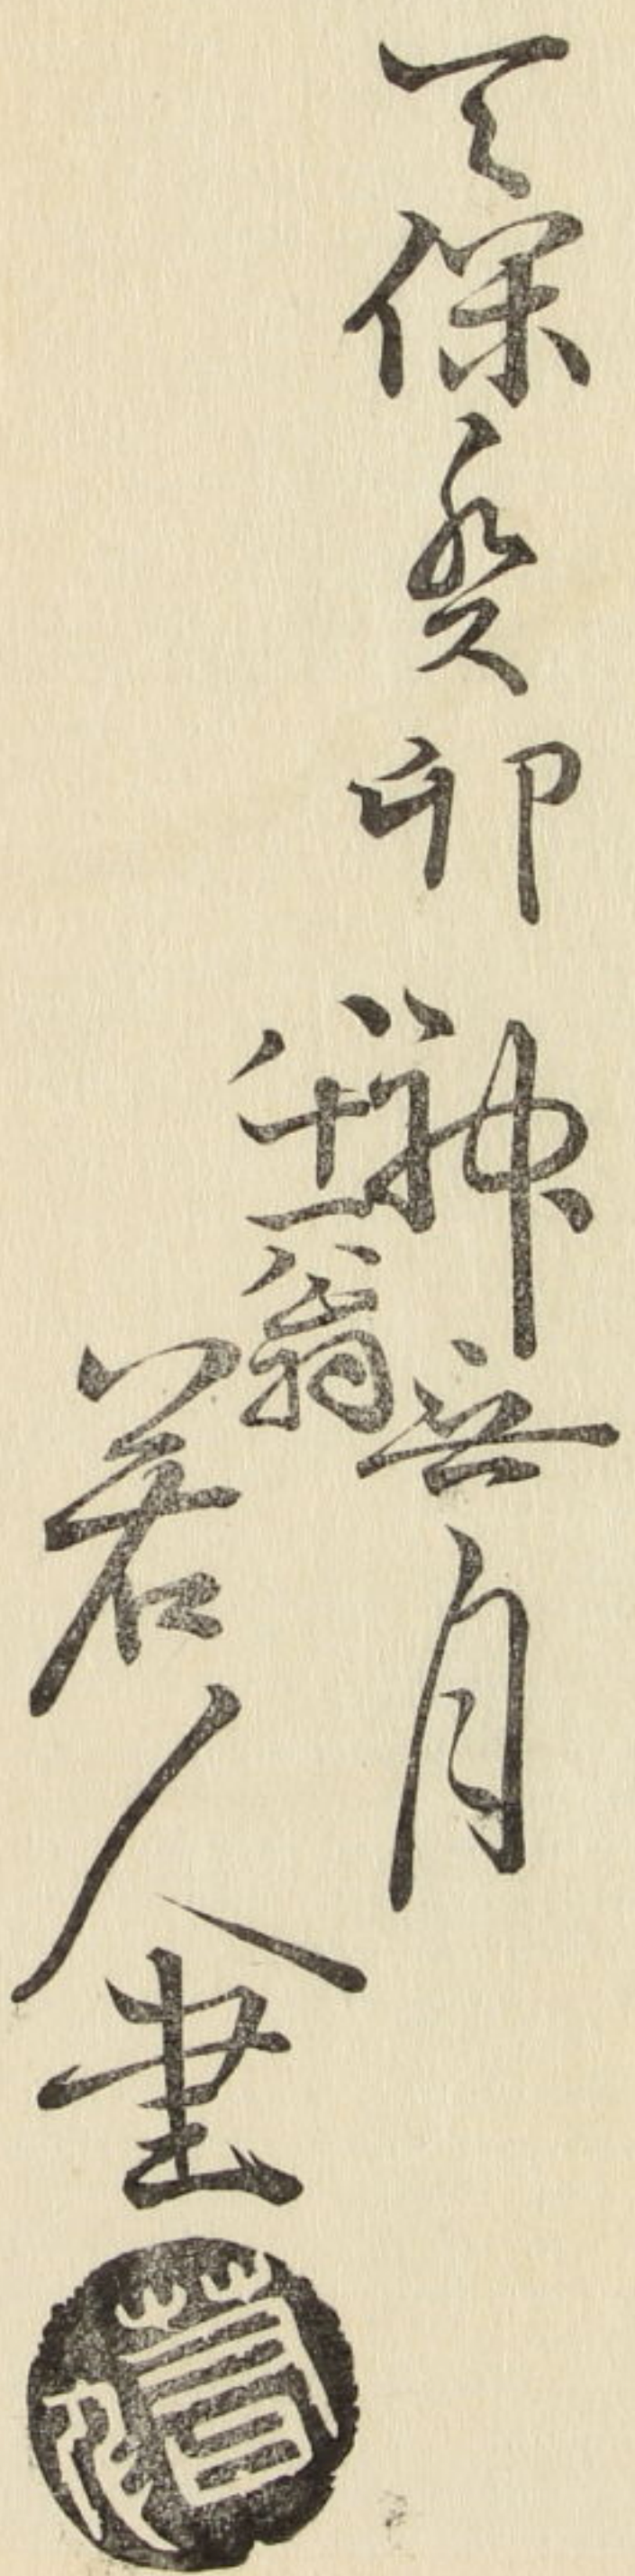 天保癸卯神無月
八十一翁
若人書